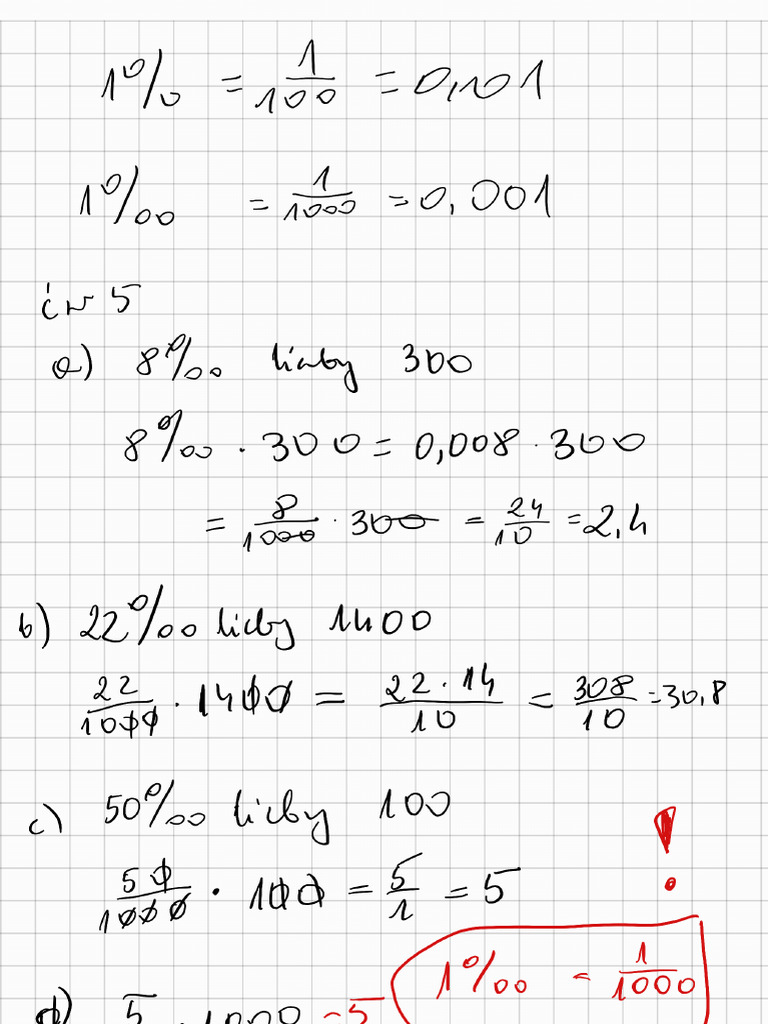 1% = 1/100 = 0,01
1‰ = 1/1000 = 0,001
ćw 5
a) 8‰ liczby 300
8‰ · 300 = 0,008 · 300
= 8/1000 · 300 = 24/10 = 2,4
b) 22‰ liczby 1400
22/1000 · 1400 = 22 · 14/10 = 308/10 = 30,8
c) 50‰ liczby 100
50/1000 · 100 = 5/1 = 5
!
1‰ = 1/1000
d) 5 · 1000 = 5